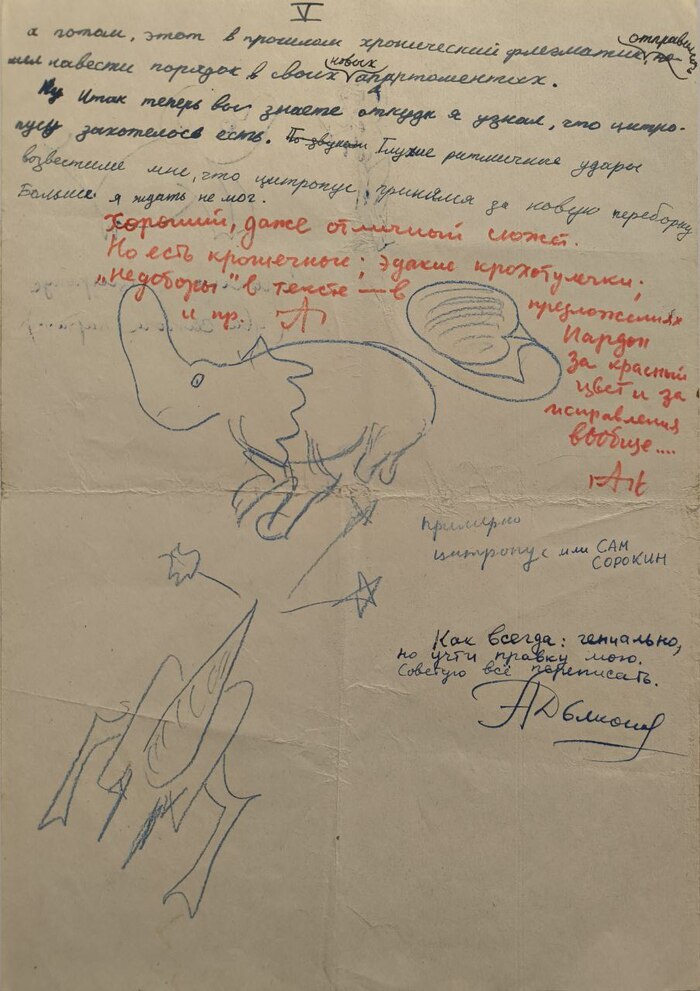 V
а потом, этот в прошлом хронический флегматик отправился по-
шел навести порядок в своих новых аппартоментах.
Ну Итак теперь вы знаете откуда я узнал, что цитро-
пусу захотелось есть. По звукам Глухие ритмичные удары
возвестили мне, что цитропус принялся за новую переборку
Больше я ждать не мог.
Хороший, даже отличный сюжет.
Но есть крошечные; эдакие крохотулечки;
„недоборы" в тексте — в предложениях
и пр. А
Пардон
за красный
цвет и за
исправления
вообще....
примерно
цитропус или САМ
СОРОКИН
Как всегда: гениально,
но учти правку мою.
Советую всё переписать.